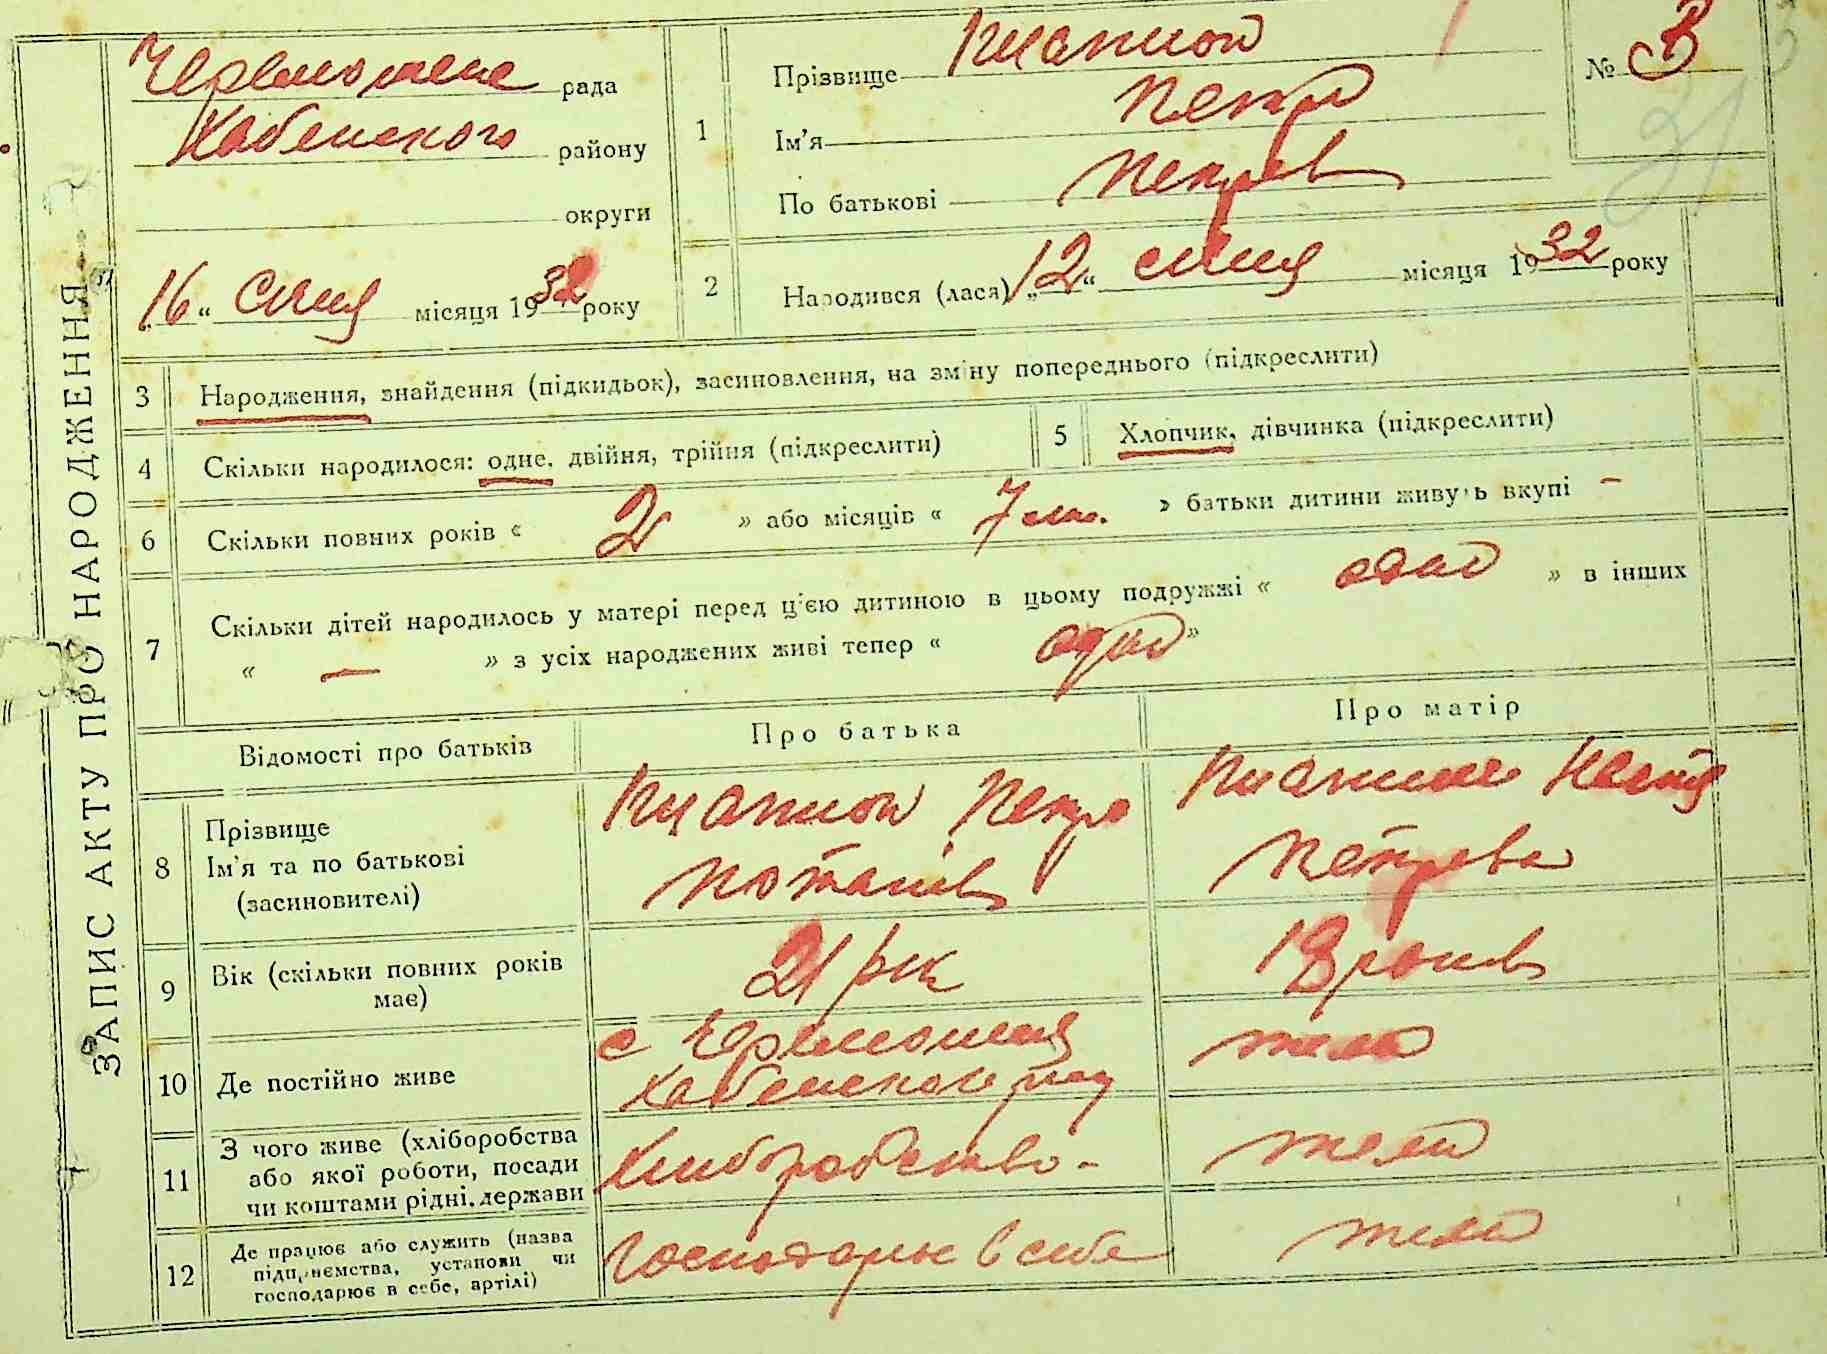 ЗАПИС АКТУ ПРО НАРОДЖЕННЯ
рада
Хабенского району
округи
„16“ січня місяця 1932 року
1
Прізвище
Ім'я Петро
По батькові Петрів
№ 3
31
2
Народився (лася) „12“ січня місяця 1932 року
3 Народження, знайдення (підкидьок), засиновлення, на зміну попереднього (підкреслити)
4 Скільки народилося: одне, двійня, трійня (підкреслити)
5 Хлопчик, дівчинка (підкреслити)
6 Скільки повних років « 2 » або місяців « 7 міс. » батьки дитини живуть вкупі –
7 Скільки дітей народилось у матері перед ц'єю дитиною в цьому подружжі « одно » в інших
« — » з усіх народжених живі тепер « одно »
Відомості про батьків
Про батька
Про матір
8 Прізвище
Ім'я та по батькові
(засиновителі)
Петро
Потапів
Настя
Петрова
9 Вік (скільки повних років
має)
21 рік
18 років
10 Де постійно живе
с
Хабенского рну
теж
11 З чого живе (хліборобства
або якої роботи, посади
чи коштами рідні, держави
Хліборобство -
теж
12 Де працює або служить (назва
підприємства, установи чи
господарює в себе, артілі)
Господарює в себе
теж